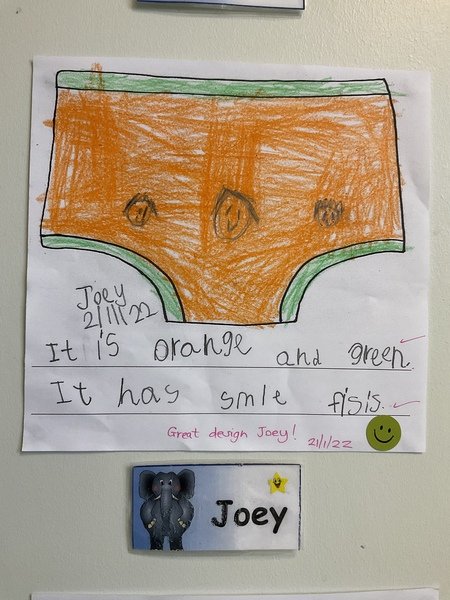 Joey
21/1/22
It is orange and green.
It has smile fisis.
Great design Joey! 21/1/22
Joey